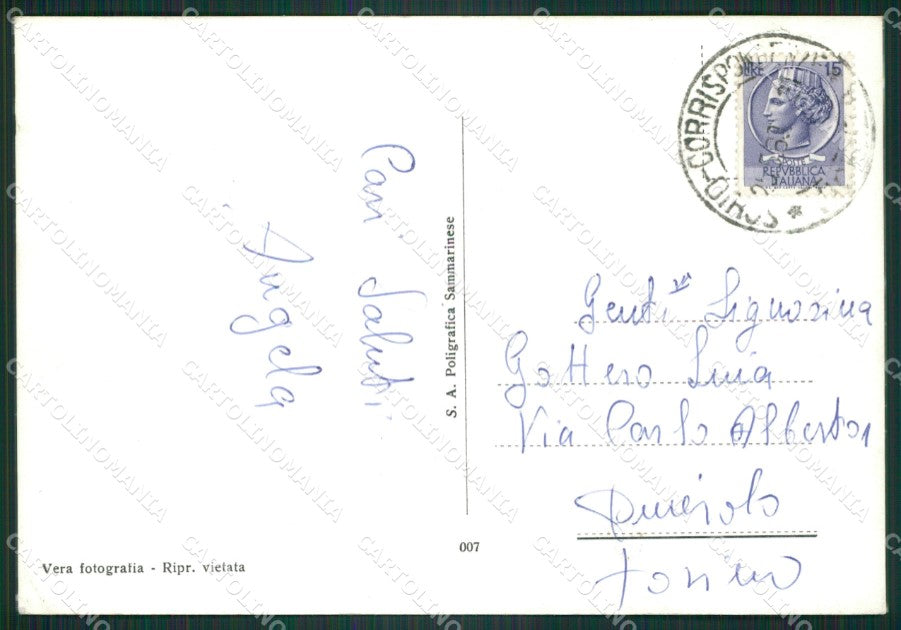 Cari Saluti
Angela
S. A. Poligrafica Sammarinese
007
Vera fotografia - Ripr. vietata
LIRE 15
POSTE
REPVBBLICA
ITALIANA
CORRISPONDENZE
Gent ma Signorina
Gottero
Via Carlo Alberto
Torino
CARTOLINOMANIA